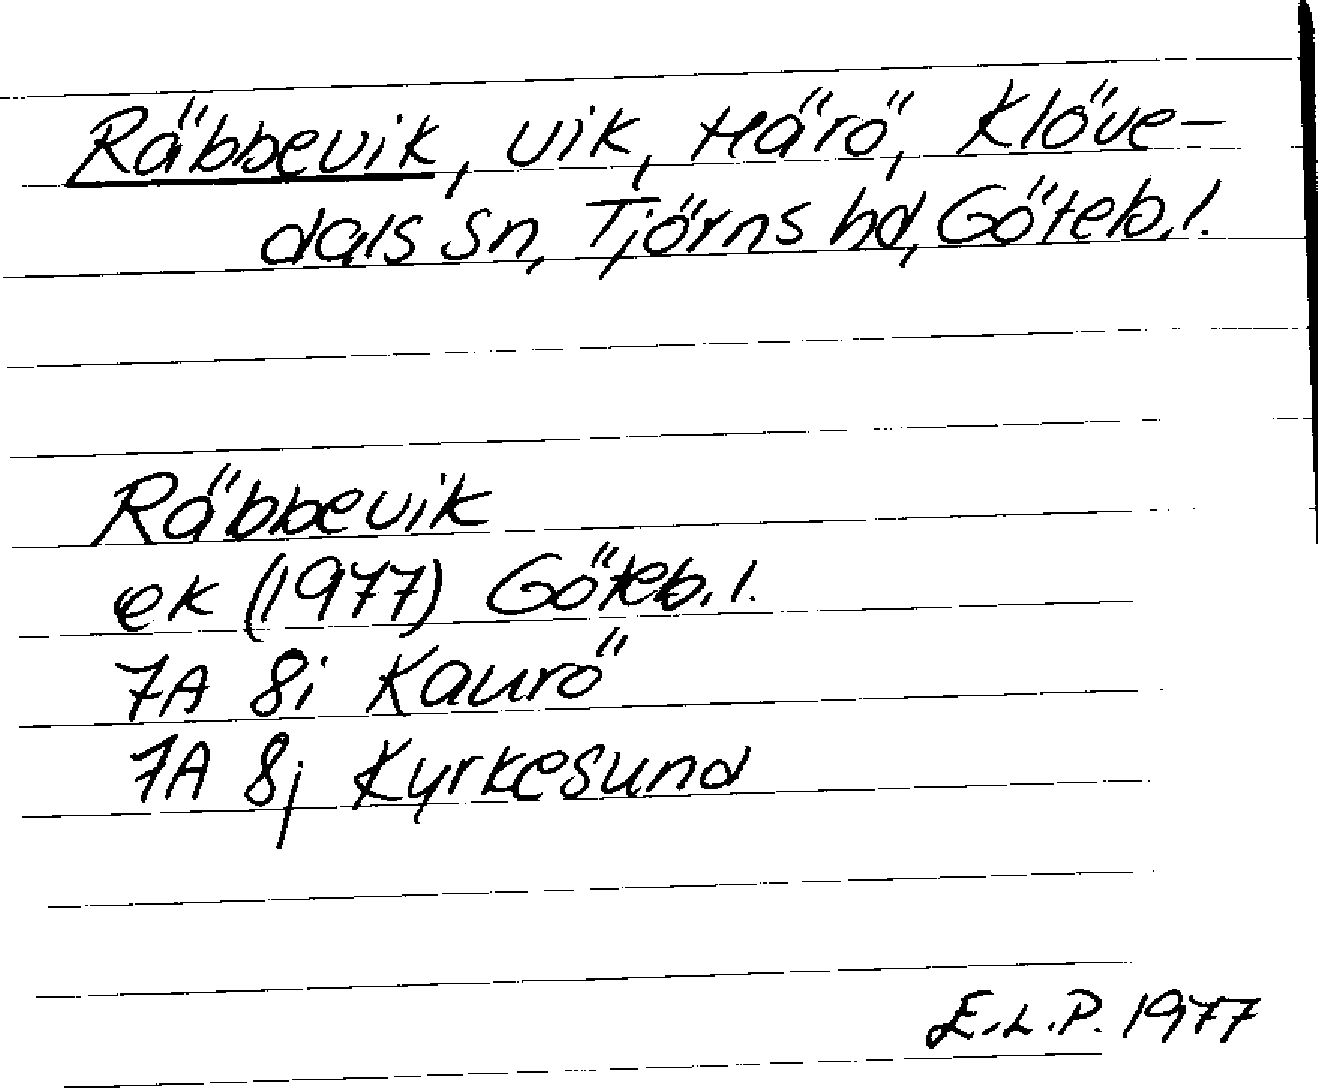 Räbbevik, vik, Härö, Klöve-
dals sn, Tjörns hd, Göteb.l.
Räbbevik
ek (1977) Göteb.l.
7A 8i Kaurö
7A 8j Kyrkesund
E.L.P. 1977